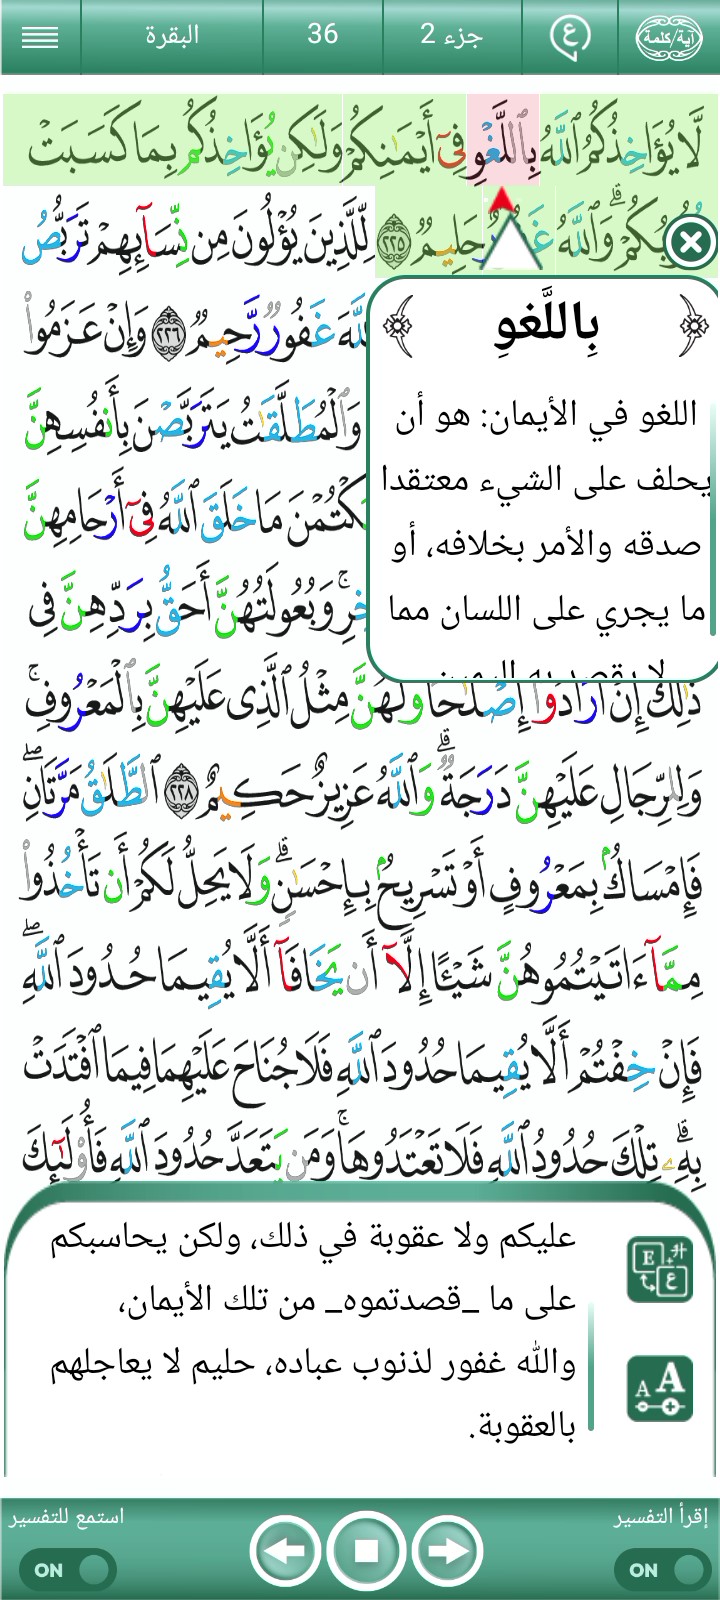 آية/كلمة ع جزء 2 36 البقرة
لَّا يُؤَاخِذُكُمُ ٱللَّهُ بِٱللَّغْوِ فِىٓ أَيْمَـٰنِكُمْ وَلَـٰكِن يُؤَاخِذُكُم بِمَا كَسَبَتْ
وَٱللَّهُ حَلِيمٌ ٢٢٥ لِّلَّذِينَ يُؤْلُونَ مِن نِّسَآئِهِمْ تَرَبُّصُ
غَفُورٌ رَّحِيمٌ ٢٢٦ وَإِنْ عَزَمُوا۟
وَٱلْمُطَلَّقَـٰتُ يَتَرَبَّصْنَ بِأَنفُسِهِنَّ
يَكْتُمْنَ مَا خَلَقَ ٱللَّهُ فِىٓ أَرْحَامِهِنَّ
وَبُعُولَتُهُنَّ أَحَقُّ بِرَدِّهِنَّ فِى
بِاللَّغوِ
اللغو في الأيمان: هو أن
يحلف على الشيء معتقدا
صدقه والأمر بخلافه، أو
ما يجري على اللسان مما
لا يقصد به اليمين
ذَٰلِكَ إِنْ أَرَادُوٓا۟ إِصْلَـٰحًا وَلَهُنَّ مِثْلُ ٱلَّذِى عَلَيْهِنَّ بِٱلْمَعْرُوفِ ۚ
وَلِلرِّجَالِ عَلَيْهِنَّ دَرَجَةٌ ۗ وَٱللَّهُ عَزِيزٌ حَكِيمٌ ٢٢٨ ٱلطَّلَـٰقُ مَرَّتَانِ ۖ
فَإِمْسَاكٌۢ بِمَعْرُوفٍ أَوْ تَسْرِيحٌۢ بِإِحْسَـٰنٍ ۗ وَلَا يَحِلُّ لَكُمْ أَن تَأْخُذُوا۟
مِمَّآ ءَاتَيْتُمُوهُنَّ شَيْـًٔا إِلَّآ أَن يَخَافَآ أَلَّا يُقِيمَا حُدُودَ ٱللَّهِ ۖ
فَإِنْ خِفْتُمْ أَلَّا يُقِيمَا حُدُودَ ٱللَّهِ فَلَا جُنَاحَ عَلَيْهِمَا فِيمَا ٱفْتَدَتْ
بِهِۦ ۗ تِلْكَ حُدُودُ ٱللَّهِ فَلَا تَعْتَدُوهَا ۚ وَمَن يَتَعَدَّ حُدُودَ ٱللَّهِ فَأُو۟لَـٰٓئِكَ
عليكم ولا عقوبة في ذلك، ولكن يحاسبكم
على ما _قصدتموه_ من تلك الأيمان،
والله غفور لذنوب عباده، حليم لا يعاجلهم
بالعقوبة.
إقرأ التفسير
ON
استمع للتفسير
ON